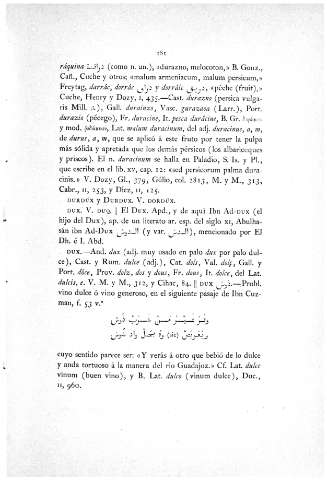 181
ráquina دراقنة (como n. un.), «durazno, melocoton,» B. Gonz.,
Cañ., Cuche y otros; «malum armeniacum, malum persicum,»
Freytag, darrác, dorrác دراق y dorráic دريق, «pèche (fruit),»
Cuche, Henry y Dozy, I, 435.—Cast. durazno (persica vulga-
ris Mill. A.), Gall. durainzo, Vasc. garauzoa (Larr.), Port.
durazio (péorgo), Fr. duracine, It. pesca durácine, B. Gr.
y mod. Lat. malum duracinum, del adj. duracinus, a, m,
de durus, a, m, que se aplicó á este fruto por tener la pulpa
más sólida y apretada que los demás pérsicos (los albaricoques
y priscos). El n. duracinum se halla en Paladio, S. Is. y Pl.,
que escribe en el lib. xv, cap. 12: «sed persicorum palma dura-
cinis.» V. Dozy, Gl., 379, Gólio, col. 2815, M. y M., 313,
Cabr., II, 253, y Diez, II, 125.
DURDÚX y DURDUX. V. DORDÚX.
DUX. V. DUQ. | El Dux, Apd., y de aquí Ibn Ad-Dux (el
hijo del Dux), ap. de un literato ar. esp. del siglo XI, Abulha-
sán ibn Ad-Dux الدوش (y var. الدش), mencionado por El
Dh. é I. Abd.
DUX.—And. dux (adj. muy usado en palo dux por palo dul-
ce), Cast. y Rom. dulce (adj.), Cat. dols, Val. dolç, Gall. y
Port. dôce, Prov. dolz, dos y dous, Fr. doux, It. dolce, del Lat.
dulcis, e. V. M. y M., 312, y Cihac, 84. || DUX دوش.—Probl.
vino dulce ó vino generoso, en el siguiente pasaje de Ibn Cuz-
man, f. 53 v.º
cuyo sentido parece ser: «Y verás á otro que bebió de lo dulce
y anda tortuoso á la manera del rio Guadajoz.» Cf. Lat. dulce
vinum (buen vino), y B. Lat. dulce (vinum dulce), Duc.,
II, 960.